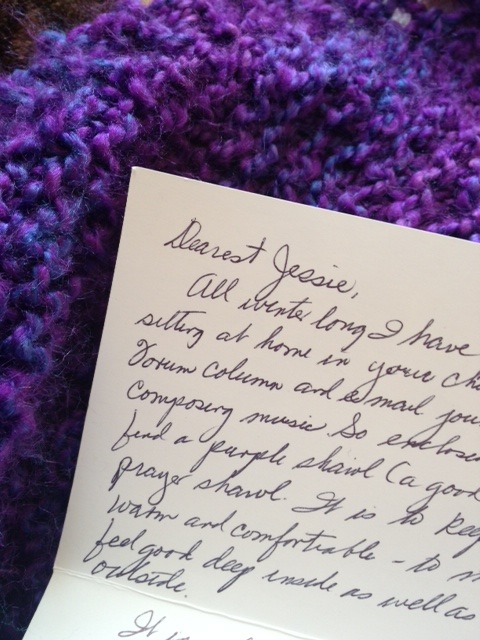 Dearest Jessie,
All winter long I have
sitting at home in your
Forum column and email
composing music. So
find a purple shawl (a good
prayer shawl. It is to
warm and comfortable - to
feel good deep inside as well as
outside.
It is